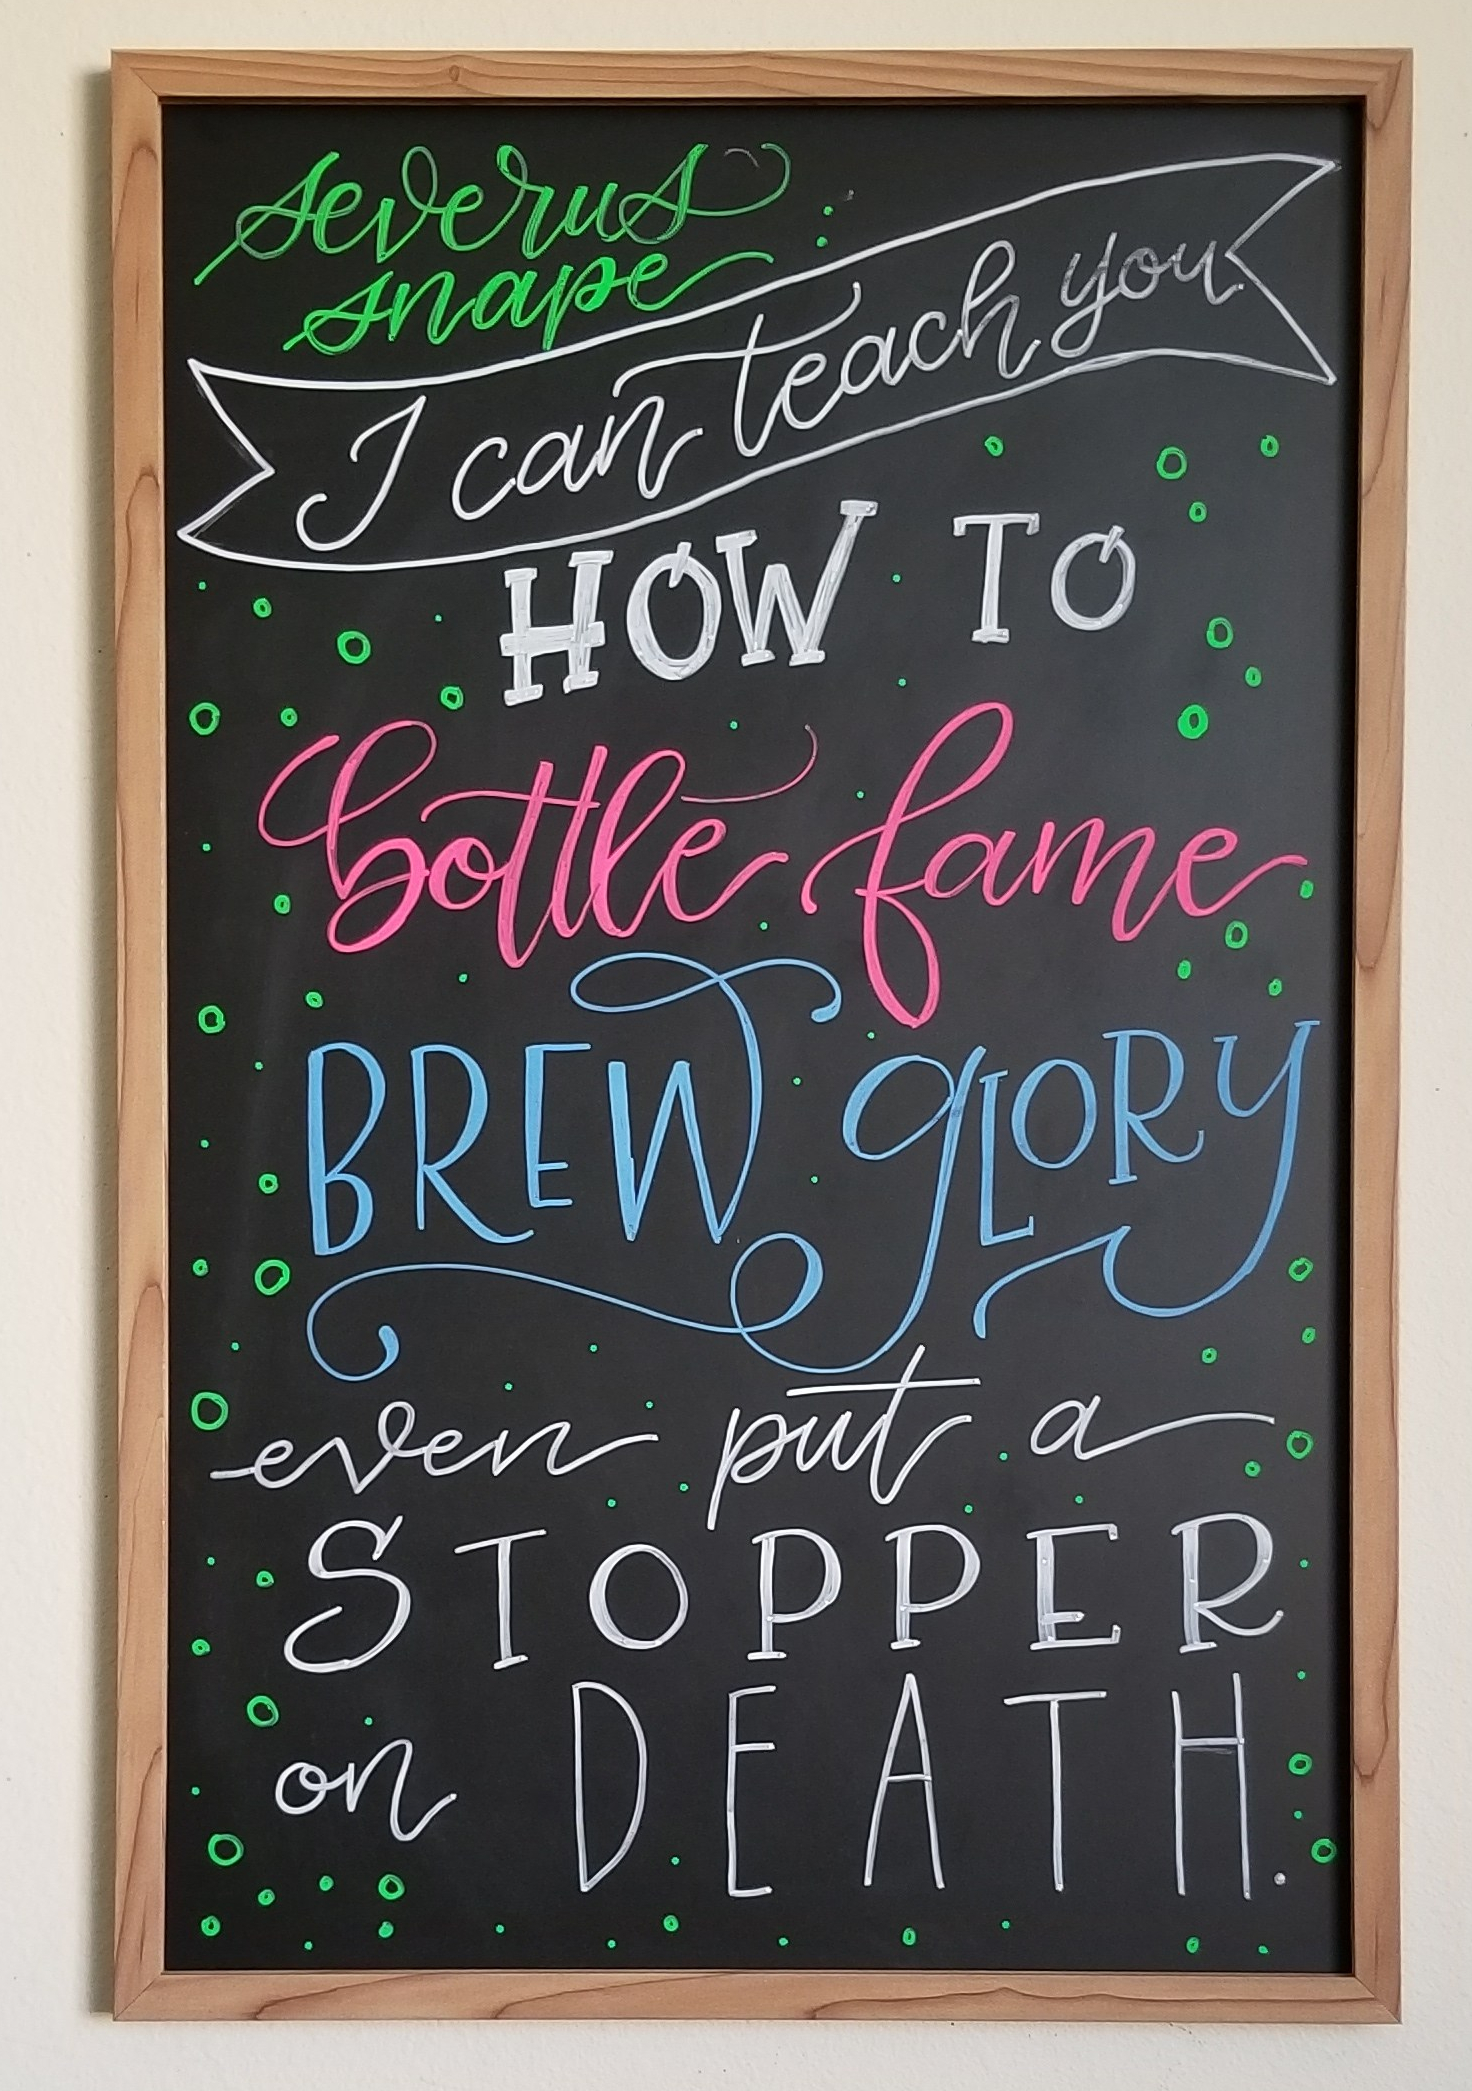 severus
snape:
I can teach you
HOW TO
bottle fame
BREW GLORY
even put a
STOPPER
on DEATH.